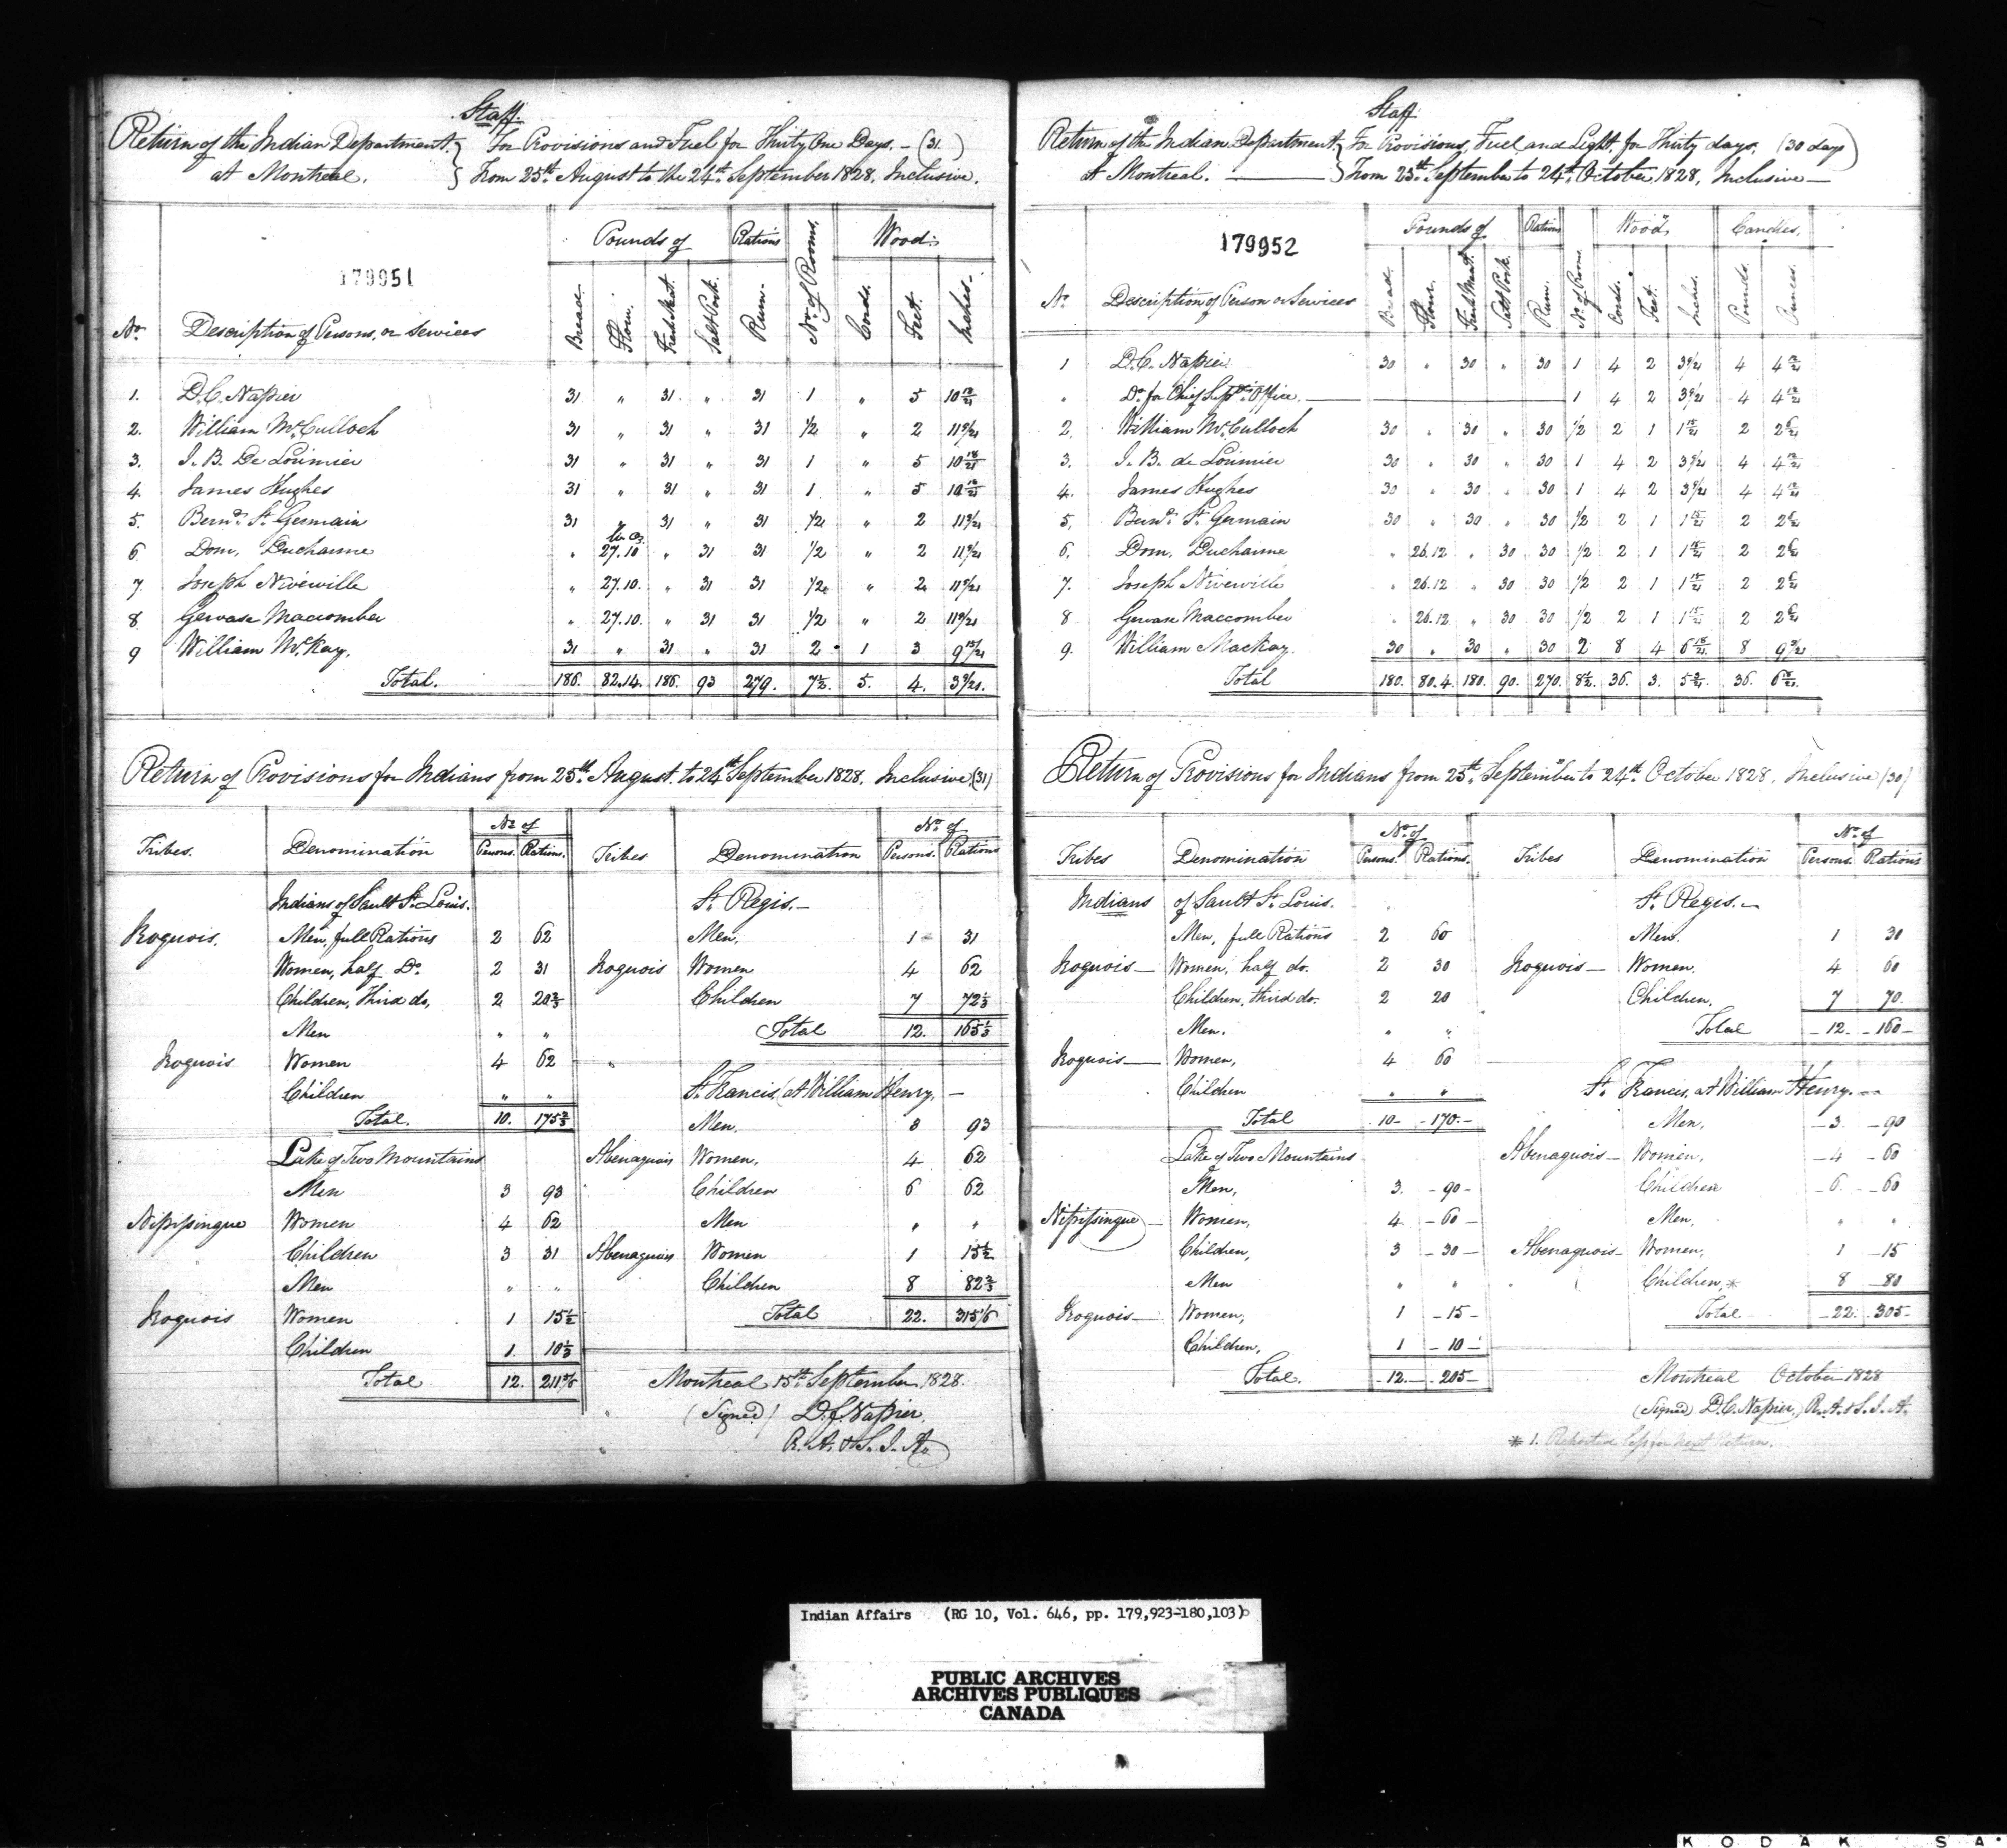 Staff.
Return of the Indian Department at Montreal. } For Provisions and Fuel for Thirty One Days. - (31)
From 25th August to the 24th September 1828, Inclusive.
179951
Pounds of Rations No. of Rooms. Wood.
No. Description of Persons, or Services Bread. Flour. Fresh Meat. Salt Pork. Rum. Cords. Feet. Inches
1. D.C. Napier 31 " 31 " 31 1 " 5 10 18/21
2. William McCulloch 31 " 31 " 31 1/2 " 2 11 9/21
3. J. B. De Lorimier 31 " 31 " 31 1 " 5 10 18/21
4. James Hughes 31 " 31 " 31 1 " 5 10 18/21
5. Bernd. St. Germain 31 " 31 " 31 1/2 " 2 11 9/21
lb. oz.
6 Dom. Ducharme " 27.10 " 31 31 1/2 " 2 11 9/21
7. Joseph Niverville " 27.10. " 31 31 1/2 " 2 11 9/21
8. Gervase Maccomber " 27.10. " 31 31 1/2 " 2 11 9/21
9 William McKay. 31 " 31 " 31 2 1 3 9 15/21
Total. 186. 82.14. 186. 93 279. 7 1/2. 5. 4. 3 9/21.
Return of Provisions for Indians from 25th August to 24th September 1828. Inclusive (31)
Tribes. Denomination No. of Persons. Rations.
Indians of Sault St. Louis.
Iroquois. Men, full Rations 2 62
Women, half Do. 2 31
Children, third do, 2 20 2/3
Men " "
Iroquois Women 4 62
Children " "
Total. 10. 175 2/3
Lake of Two Mountains
Men 3 93
Nipissingue Women 4 62
Children 3 31
Men " "
Iroquois Women 1 15 1/2
Children 1. 10 1/3
Total 12. 211 5/6
Tribes Denomination No. of Persons. Rations
St. Regis. -
Men. 1 31
Iroquois Women 4 62
Children 7 72 1/3
Total 12. 165 1/3
St. Francis (at William Henry. -
Men. 3 93
Abenaquois Women. 4 62
Children 6 62
Men " "
Abenaquois Women 1 15 1/2
Children 8 82 2/3
Total 22. 315 1/6
Montreal 15th September 1828.
(Signed) D.C. Napier.
R. A. & S. I. A.
Staff
Return of the Indian Department at Montreal. } For Provisions, Fuel and Light, for Thirty days. (30 days)
From 25th September to 24th October, 1828, Inclusive
179952
Pounds of Rations No. of Rooms. Wood, Candles,
No. Description of Person or Services Bread. Flour. Fresh Meat. Salt Pork. Rum. Cords. Feet. Inches Pounds. Ounces.
1 D.C. Napier 30 " 30 " 30 1 4 2 3 9/21 4 4 12/21
" Do. for Chief Supts. Office. 1 4 2 3 9/21 4 4 12/21
2. William McCulloch 30 " 30 " 30 1/2 2 1 1 15/21 2 2 6/21
3. J. B. de Lorimier 30 " 30 " 30 1 4 2 3 9/21 4 4 12/21
4. James Hughes 30 " 30 " 30 1 4 2 3 9/21 4 4 12/21
5. Bernd. St. Germain 30 " 30 " 30 1/2 2 1 1 15/21 2 2 6/21
6. Dom. Ducharme " 26.12 " 30 30 1/2 2 1 1 15/21 2 2 6/21
7. Joseph Niverville " 26.12 " 30 30 1/2 2 1 1 15/21 2 2 6/21
8 Gervase Maccomber " 26.12 " 30 30 1/2 2 1 1 15/21 2 2 6/21
9. William Mackay. 30 " 30 " 30 2 8 4 6 18/21 8 9 3/21
Total 180. 80.4. 180. 90. 270. 8 1/2. 36. 3. 5 3/21. 36. 6 18/21.
Return of Provisions for Indians from 25th September to 24th October 1828, Inclusive (30)
Tribes Denomination No. of Persons. Rations.
Indians of Sault St. Louis.
Men, full Rations 2 60
Iroquois Women, half do. 2 30
Children, third do. 2 20
Men. " "
Iroquois Women, 4 60
Children " "
Total 10 - 170 -
Lake of Two Mountains
Men, 3. - 90 -
Nipissingue Women, 4 - 60 -
Children, 3 - 30 -
Men " "
Iroquois Women, 1 - 15 -
Children, 1 - 10 -
Total. - 12. - 205 -
Tribes Denomination No. of Persons. Rations
St. Regis. -
Men. 1 30
Iroquois Women. 4 60
Children, 7 70.
Total - 12. - 160 -
St. Francis, at William Henry. -
Men, - 3. - 90
Abenaquois Women, - 4 - 60
Children - 6. - 60
Men, " "
Abenaquois Women, 1 - 15
Children, * 8 - 80
Total - 22. 305 -
Montreal October 1828
(Signed) D.C. Napier, R. A. & S. I. A.
* 1. Reported less for next Return.
Indian Affairs (RG 10, Vol. 646, pp. 179,923-180,103)
PUBLIC ARCHIVES
ARCHIVES PUBLIQUES
CANADA
KODAK SA